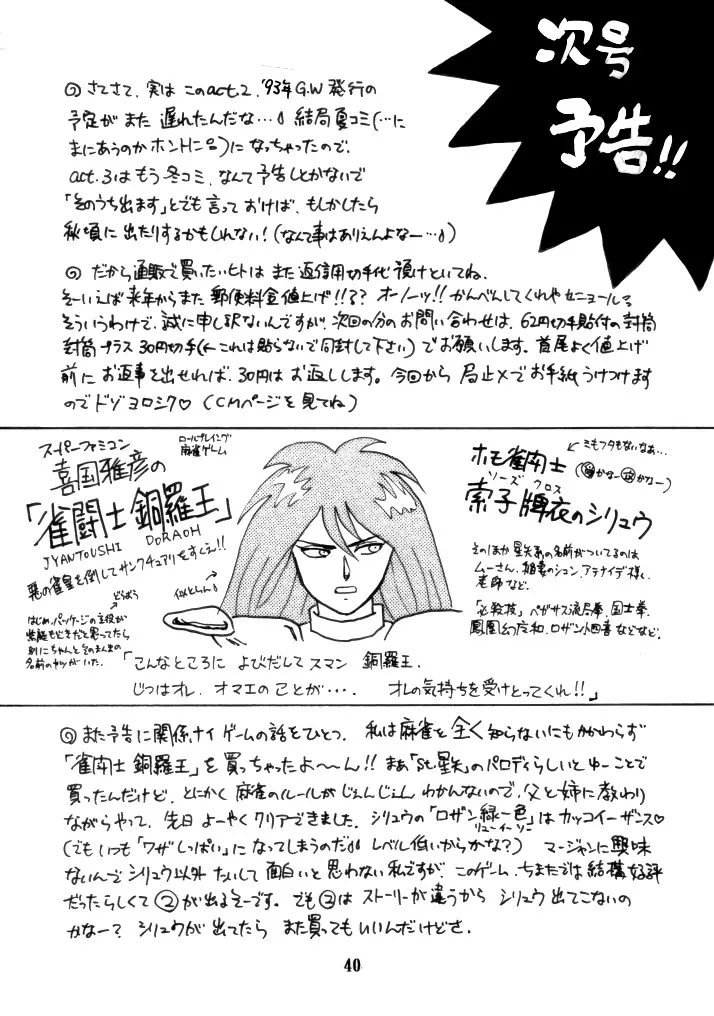 次号
予告!!
◎ さてさて、実は このact.2、'93年G.W発行の
予定がまた 遅れたんだな…♪ 結局夏コミ(…に
まにあうのかホントに
)に なっちゃったので、
act.3はもう冬コミ、なんて予告しとかないで
「そのうち出ます」とでも言って おけば、もしかしたら
秋頃に 出たりするかもしれない!(なんて事はありえんよなー…♪)
◎ だから通販で買いたいヒトは また返信用切手代 預けといてね、
そーいえば 来年からまた 郵便料金値上げ!!?? オーノーッ!! かんべんしてくれやセニョール
そういうわけで、誠に申し訳ないんですが、次回の分のお問い合わせは、62円切手貼付の封筒
封筒プラス 30円切手(←これは貼らないで同封して下さい)でお願いします。首尾よく値上げ
前に お返事を出せれば、30円は お返しします。今回から 局止メでお手紙うけつけます
のでドゾヨロシク♡ (CMページを見てね)
スーパーファミコン
ロールプレイング
麻雀ゲーム
喜国雅彦の
「雀闘士 銅羅王」
JYANTOUSHI DORAOH
悪の雀皇を倒してサンクチュアリをすくえ!!
どらぱう
はじめ、パッケージの主役が
紫龍もどきだと思ってたら
別にちゃんとそのまんまの
名前のヤツがいた。
似とらん♪
ホモ雀闘士
← ミもフタもないなあ…
ソーズ クロス
索子牌衣のシリュウ
そのほか 星矢系の名前がついてるのは
ムーさん、稲妻のシュン、アテナイデ様、
老師など。
「必殺技」ペガサス流局拳、国士拳、
鳳凰幻庄和、ロザント四喜などなど。
「こんなところに よびだして スマン 銅羅王、
じつはオレ、オマエのことが…。 オレの気持ちを受けとってくれ!!」
◎ また予告に関係ナイ ゲームの話をひとつ、 私は麻雀を全く知らないにもかかわらず
「雀闘士 銅羅王」を 買っちゃったよ〜ん!! まあ「St.星矢」のパロディらしいとゆーことで
買ったんだけど、とにかく 麻雀のルールがじぇんじぇん わかんないので、父と姉に教わり
ながらやって、先日 よーやく クリアできました。シリュウの「ロザン緑一色」は カッコイーザンス♡
リューイーソー
(でもいつも「ワザしっぱい」に なってしまうのだ♪♪ レベル低いからかな?) マージャンに興味
ないんで シリュウ以外 たいして 面白いと 思わない私ですが、このゲーム、ちまたでは 結構 好評
だったらしくて ②が出るそーです。でも ②は ストーリーが違うから シリュウ 出てこないの
かなー? シリュウが 出てたら また買っても いいんだけどさ.
40